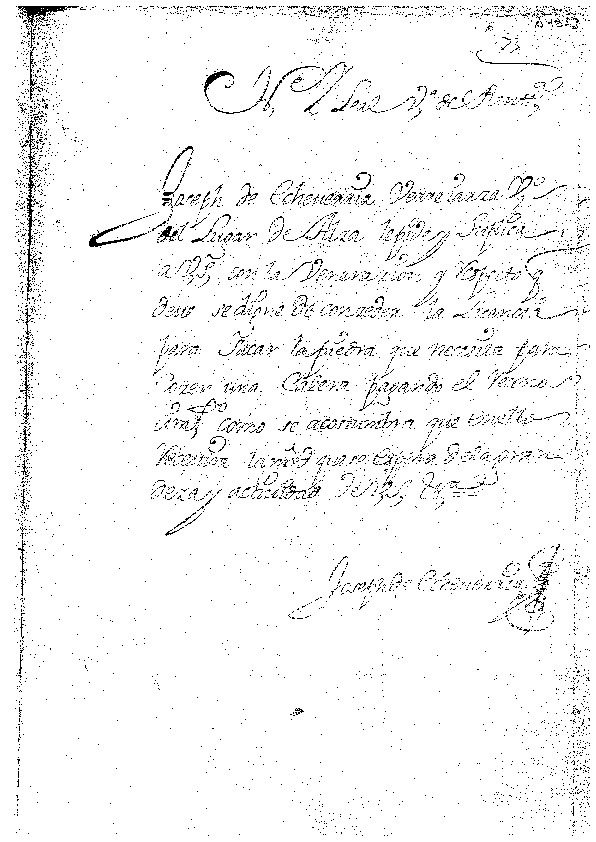 7
N. L Leal V.ª de Rentª
Joseph de Echeuerria Verrotaraza Vº
del Lugar de Alza le pide y Suplica
a VS, con la Veneracion y respeto q
deue se digne de conceder la Licencia
para Sacar la piedra que necesita para
cozer una Calera pagando el
como se acostumbra que en ello
Receuira la mrd que espera de la gran
deza y de VS, &ª
Joseph de Echeuerria